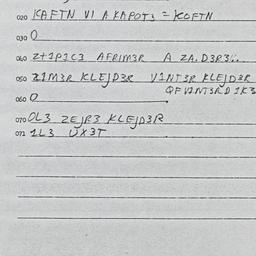 020 KAFTN VI A KAPOTJ = KOFTN
030 O
040 Z+1P1C3 AFRIM3R A ZA. D3R3...
050 Z1M3R KLEJD3R V1NT3R KLEJD3R
QFV1NT3RD1K3
060 O
070 OL3 ZEJR3 KLEJD3R
071 1L3 UX3T